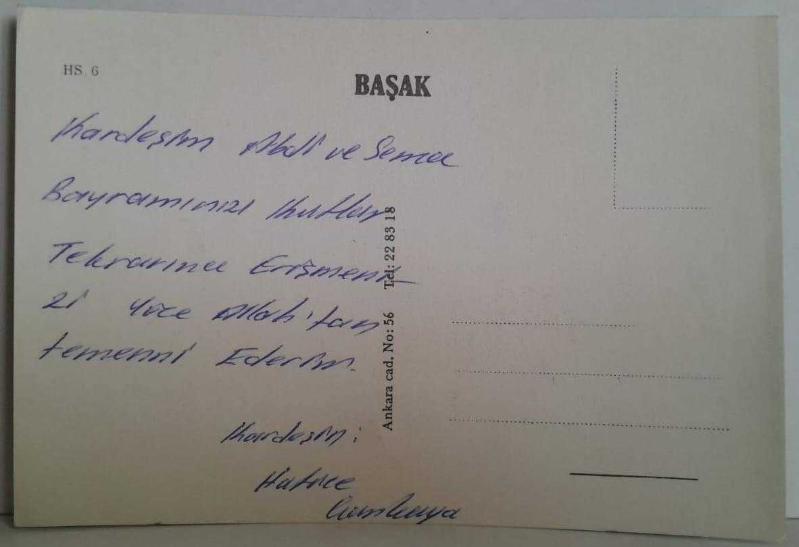 HS. 6
BAŞAK
Kardeşim Abdi ve Sema
Bayramınızı Kutlar
Tekrarına Erişmeni
zi Yüce Allah'tan
temenni Ederim.
Kardeşin:
Hatice
Ankara cad. No: 56 Tel: 22 83 18